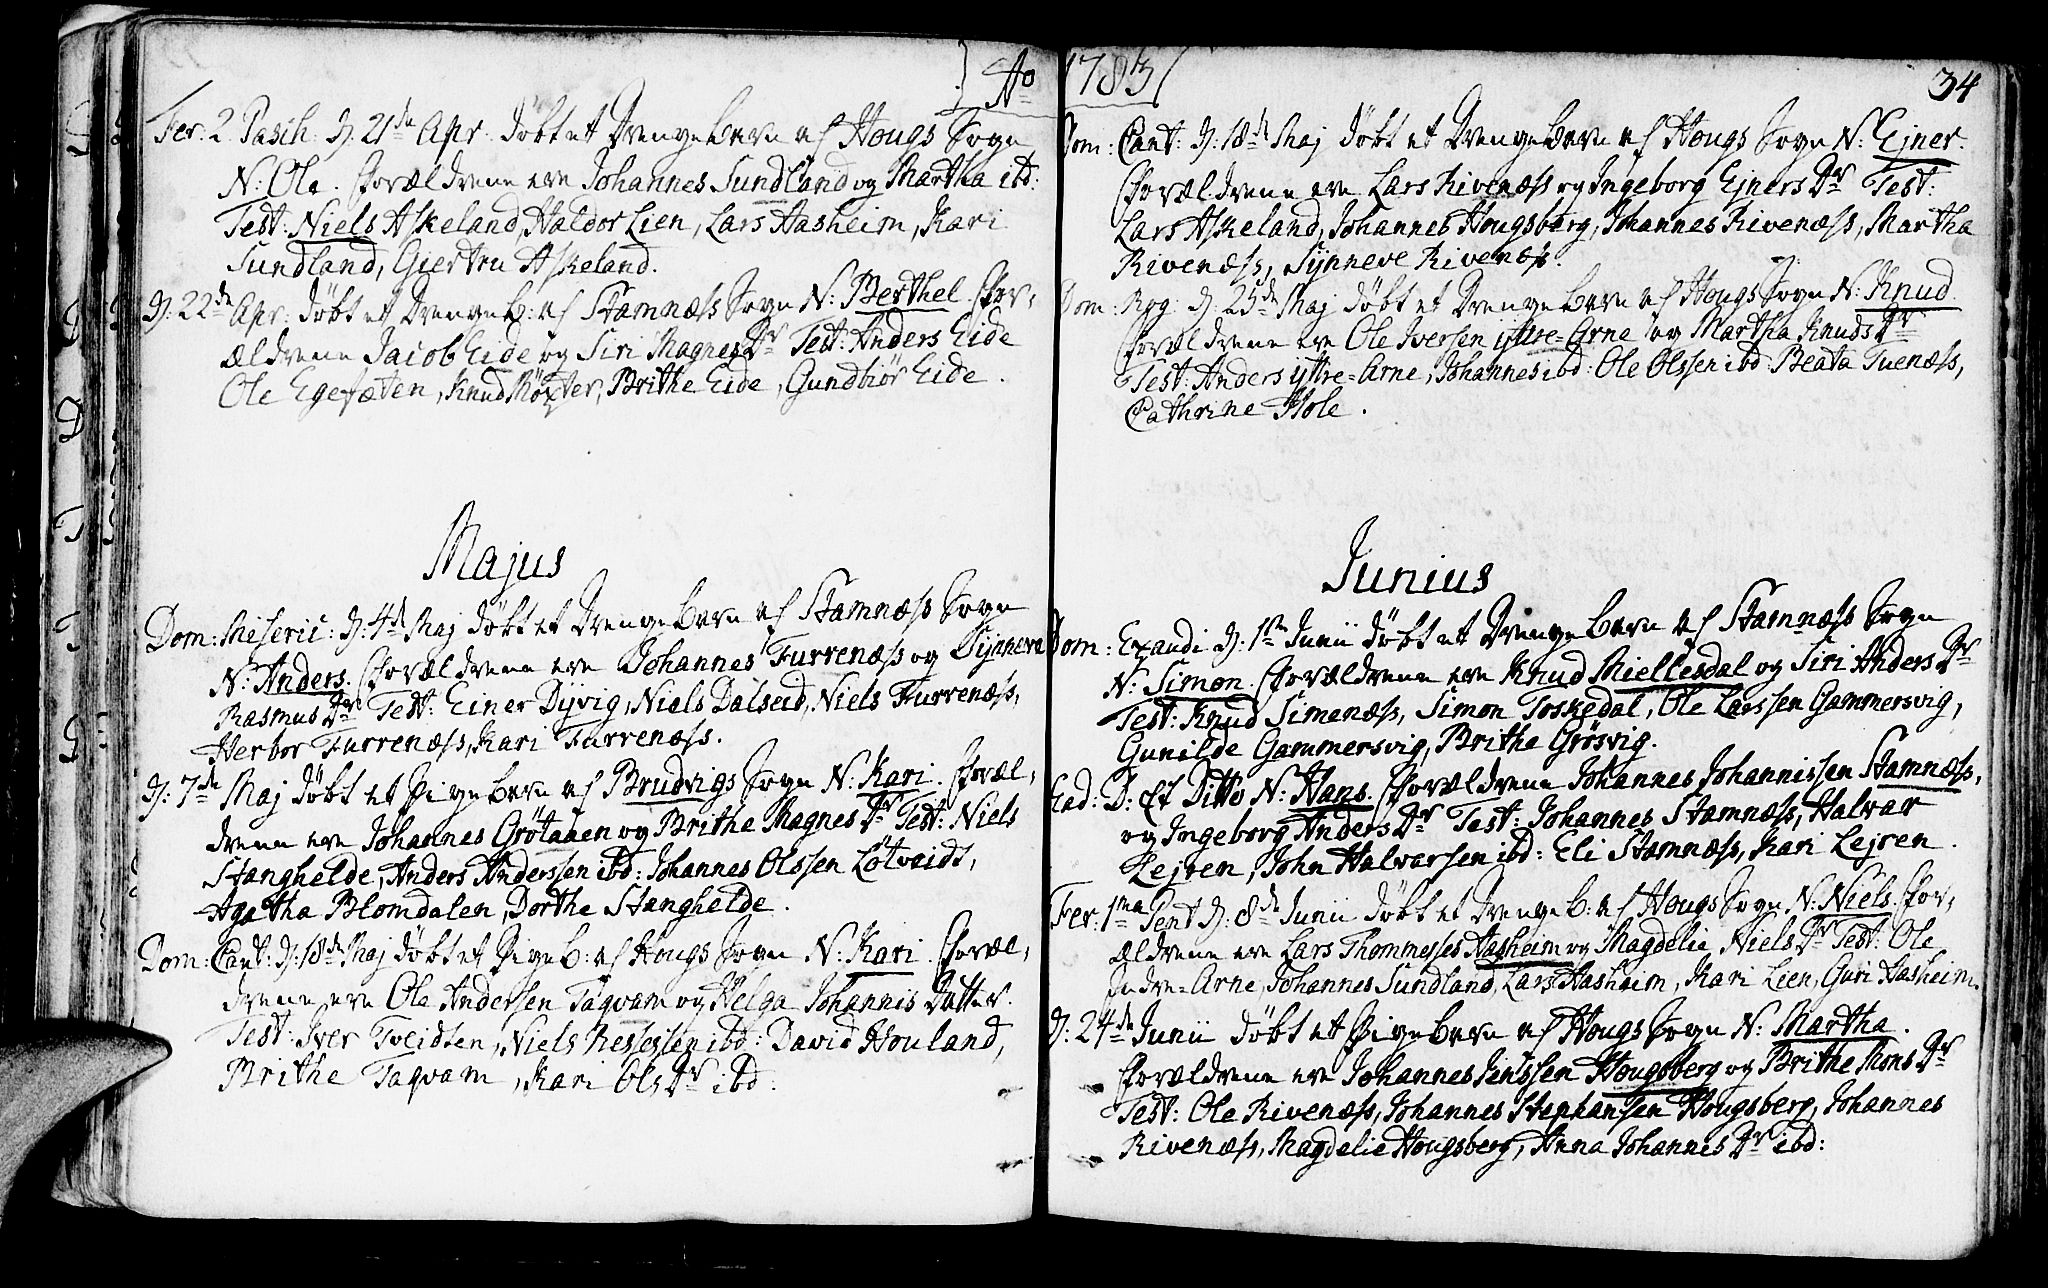 Ao 1783
34
Fer: 2. Pasch: d. 21de Apr. døbt et Drengebarn af Hougs Sogn
N: Ole. Forældrene ere Johannes Sundland og Martha ibd:
Test: Niels Askeland, Haldor Lien, Lars Aasheim, Kari
Sundland, Giertru Askeland.
d: 22de Apr: døbt et Drengeb: af Stamness Sogn N: Berthel. For,
ældrene Jacob Eide og Siri MagnesDr Test: Anders Eide
Ole Egesæten, Knud Møxter, Brithe Eide, Gundbiør Eide.
Majus
Dom: Miseric: d: 4de Maj døbt et Drengebarn af Stamnæss Sogn
N: Anders. Forældrene ere Johannes Furrenæss og Synneva
RasmusDr Test: Einer Dyvig, Niels Dalseid, Niels Furrenæss,
Herbor Furrenæss, Kari Furrenæss.
d: 7de Maj døbt et Pigebarn af Brudvigs Sogn N: Kari. Foræl,
drene ere Johannes Grötaaen og Brithe MagnesDr Test: Niels
Stanghelde, Anders Anderssen ibd: Johannes Olssen Lötvaidt,
Agatha Blomdalen, Dorthe Stanghelde.
Dom: Cant: d: 18de Maj døbt et Pigeb: af Hougs Sogn N: Kari. Foræl,
drene ere Ole Andersen Taqvam og Helga Johannis Datter.
Test: Iver Tveidten, Niels Nessessen ibd: David Houland,
Brithe Taqvam, Kari OlsDr ibd:
Dom: Cant: d: 18de Maj døbt et Drengebarn af Hougs Sogn N: Ejner.
Forældrene ere Lars Rivenæss og Ingeborg EjnersDr Test:
Lars Askeland, Johannes Hougsberg, Johannes Rivenæss, Martha
Rivenæss, Synneve Rivenæss.
Dom: Rog: d: 25de Maj døbt et Drengebarn af Hougs Sogn N: Knud.
Forældrene ere Ole Iversen yttre=Arne og Martha KnudsDr
Test: Anders yttre=Arne, Johannes ibd: Ole Olssen ibd: Beata Tuenæss,
Cathrine Hole.
Junius
Dom: Exaudi d: 1ste Junii døbt et Drengebarn af Stamnæss Sogn
N: Simon. Forældrene ere Knud Miellesdal og Siri AndersDr
Test: Knud Simenæss, Simon Toskedal, Ole Larssen Gammersvig,
Gunilde Gammersvig, Brithe Grøsvig.
Ead: D: et Ditto N: Hans. Forældrene Johannes Johannissen Stamnæss,
og Ingeborg AndersDr Test: Johannes Stamnæss, Halvar
Lejren, John Halvarsen ibd: Eli Stamnæss, Kari Lejren.
Fer: 1ma Pent d: 8de Junii døbt et Drengeb: af Hougs Sogn N: Niels. For,
ældrene ere Lars Thommesses Aasheim og Magdelie NielsDr Test: Ole
Indre=Arne, Johannes Sundland, Lars Aasheim, Kari Lien, Guri Aasheim.
d: 24de Junii døbt et Pigebarn af Hougs Sogn N: Martha.
Forældrene ere Johannes Jenssen Hougsberg og Brithe MonsDr
Test: Ole Rivenæss, Johannes Stephansen Hougsberg, Johannes
Rivenæss, Magdelie Hougsberg, Anna JohannesDr ibd: